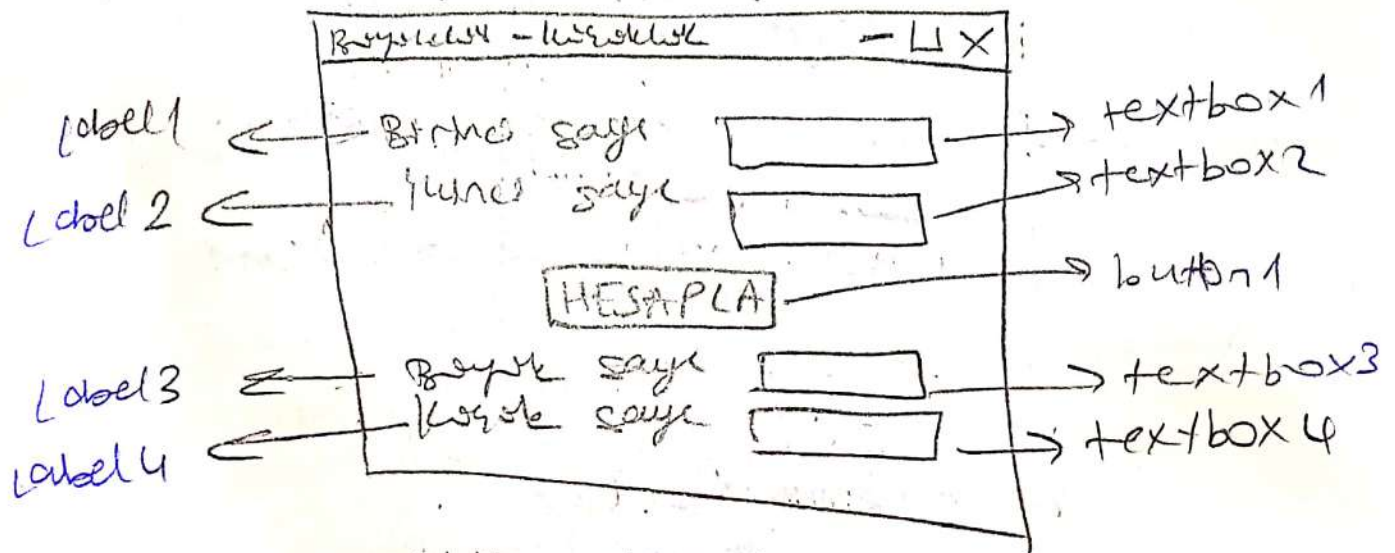 Büyüklük - küçüklük
label1 Birinci sayı textbox1
Label 2 İkinci sayı textbox2
HESAPLA button1
Label3 Büyük sayı textbox3
Label4 Küçük sayı textbox4